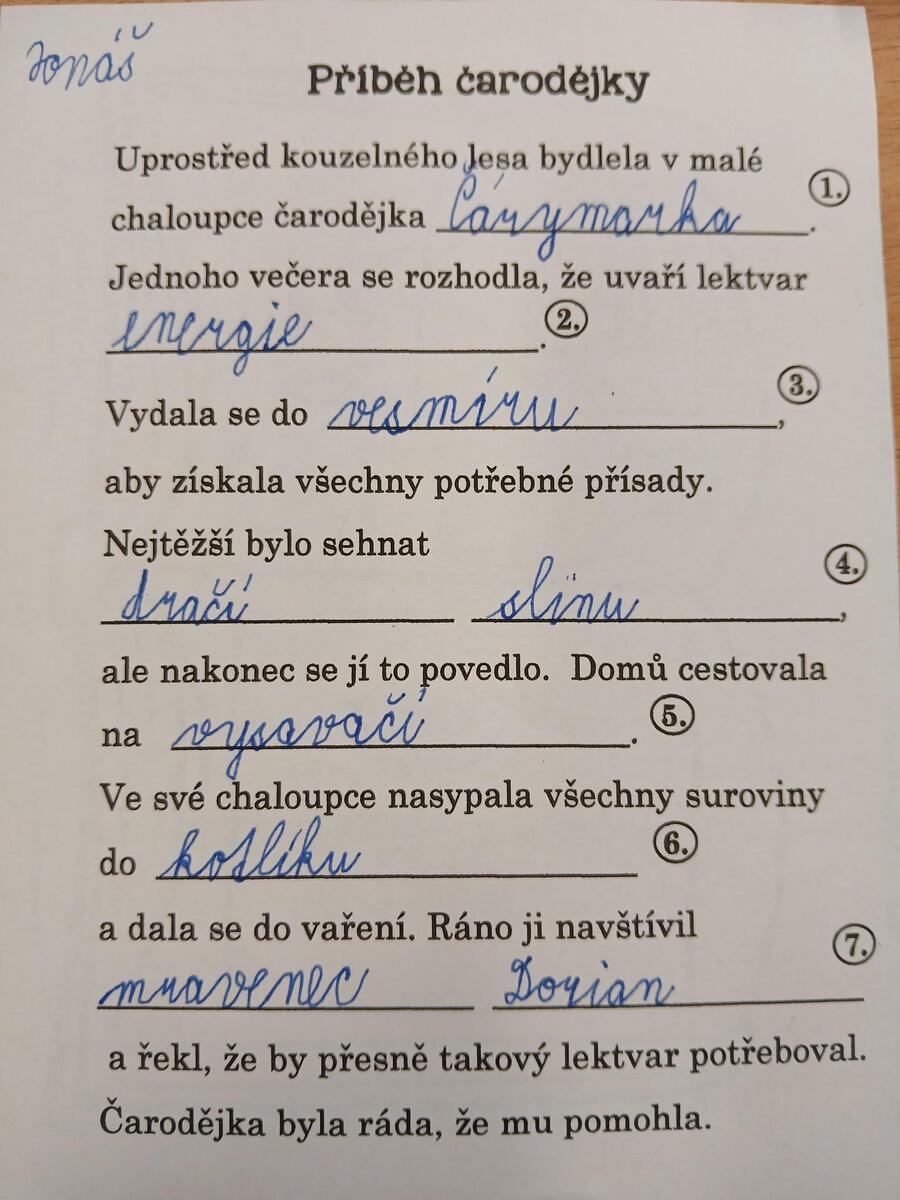 Jonáš
Příběh čarodějky
Uprostřed kouzelného lesa bydlela v malé
1.
chaloupce čarodějka Čárymarka.
Jednoho večera se rozhodla, že uvaří lektvar
energie. 2.
3.
Vydala se do vesmíru,
aby získala všechny potřebné přísady.
Nejtěžší bylo sehnat
4.
dračí slinu,
ale nakonec se jí to povedlo. Domů cestovala
na vysavačí. 5.
Ve své chaloupce nasypala všechny suroviny
do kotlíku 6.
a dala se do vaření. Ráno ji navštívil
7.
mravenec Dorian
a řekl, že by přesně takový lektvar potřeboval.
Čarodějka byla ráda, že mu pomohla.